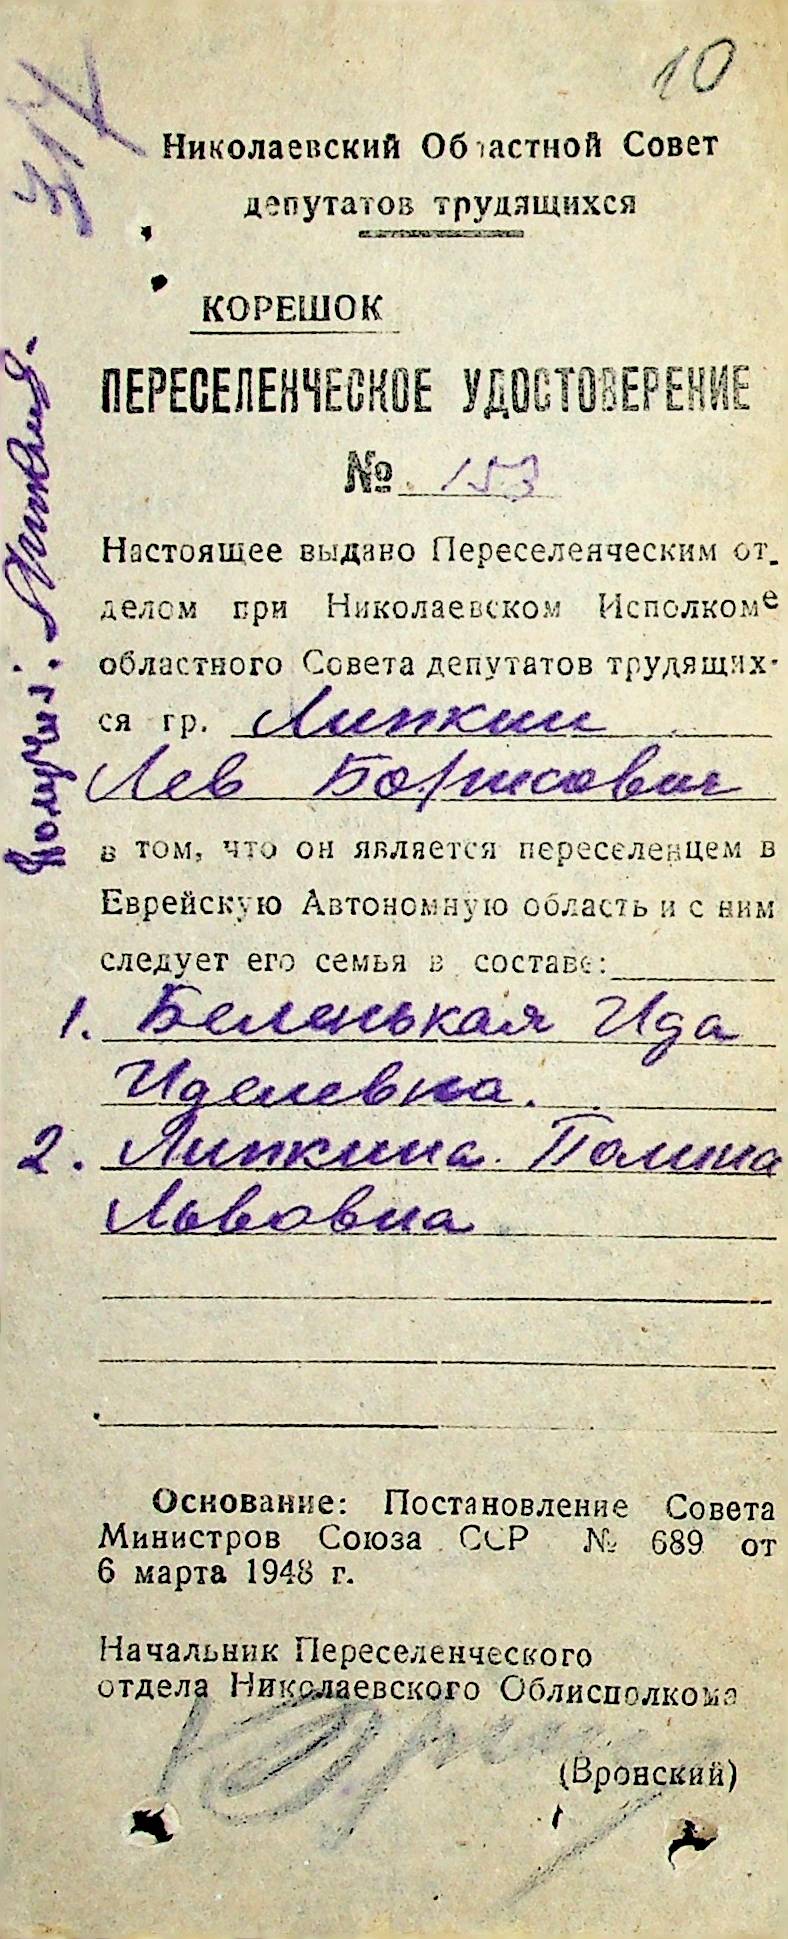 10
317
Николаевский Областной Совет
депутатов трудящихся
КОРЕШОК
ПЕРЕСЕЛЕНЧЕСКОЕ УДОСТОВЕРЕНИЕ
№ 153
Настоящее выдано Переселенческим от-
делом при Николаевском Исполкоме
областного Совета депутатов трудящих-
ся гр. Липкин
Лев Борисович
в том, что он является переселенцем в
Еврейскую Автономную область и с ним
следует его семья в составе:
1. Беленькая Ида
Иделевна.
2. Липкина Полина
Львовна
Основание: Постановление Совета
Министров Союза ССР № 689 от
6 марта 1948 г.
Начальник Переселенческого
отдела Николаевского Облисполкома
(Вронский)
Получил: